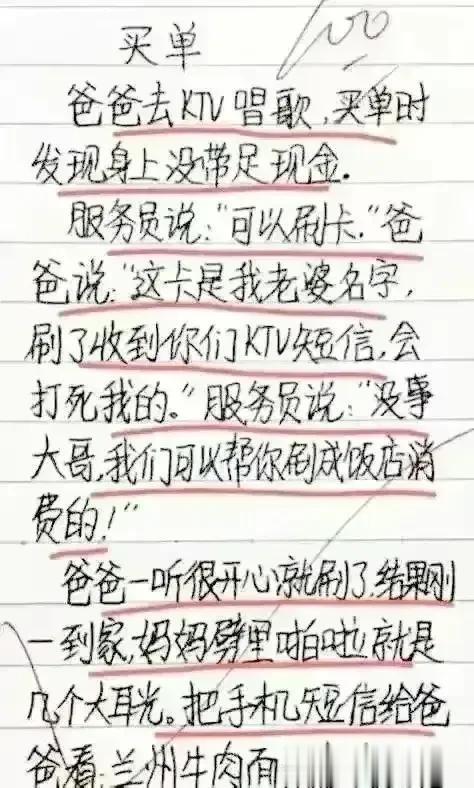 100
买单
爸爸去KTV唱歌,买单时
发现身上没带足现金.
服务员说:“可以刷卡.”爸
爸说:“这卡是我老婆名字,
刷了收到你们KTV短信,会
打死我的.”服务员说:“没事
大哥,我们可以帮你刷成饭店消
费的!”
爸爸一听很开心就刷了,结果刚
一到家,妈妈劈里啪啦就是
几个大耳光。把手机短信给爸
爸看:兰州牛肉面